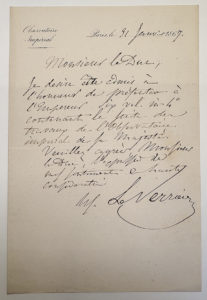 Observatoire
Impérial
Paris le 31 Janv. 1867.
Monsieur le Duc,
Je désire être admis à
l'honneur de présenter à
l'Empereur vol. in-4°
contenant la suite des
travaux de l'Observatoire
impérial de sa Majesté.
Veuillez agréer Monsieur
le Duc, l'expression de
mes sentiments
considération
Le Verrier